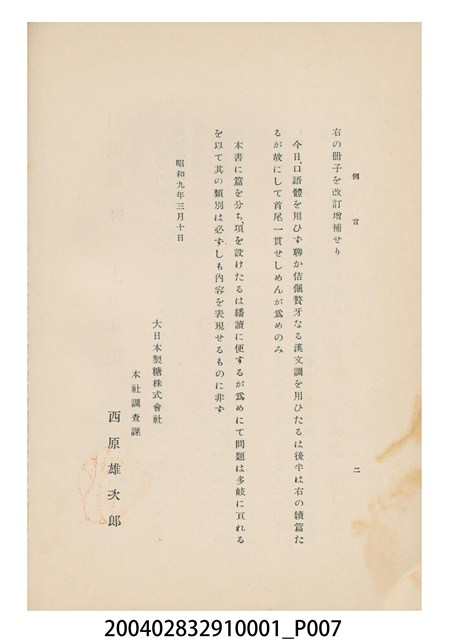 例言
二
右の冊子を改訂增補せり
今日、口語體を用ひず聊か佶倔贅牙なる漢文調を用ひたるは後半は右の續篇た
るが故にして首尾一貫せしめんが爲めのみ
本書に篇を分ち、項を設けたるは繙讀に便するが爲めにて問題は多岐に亙れる
を以て其の類別は必ずしも內容を表現せるものに非ず
昭和九年三月十日
大日本製糖株式會社
本社調査課
西原雄次郎
200402832910001_P007